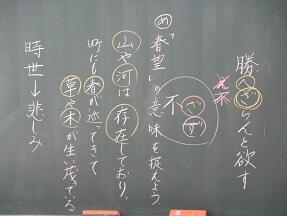 勝へざらんと欲す
不
不
ざ
ず
め「春望」の意味を捉えよう
山や河は存在しており、
町にも春が巡ってきて
草や木が生い茂っている
時世→悲しみ